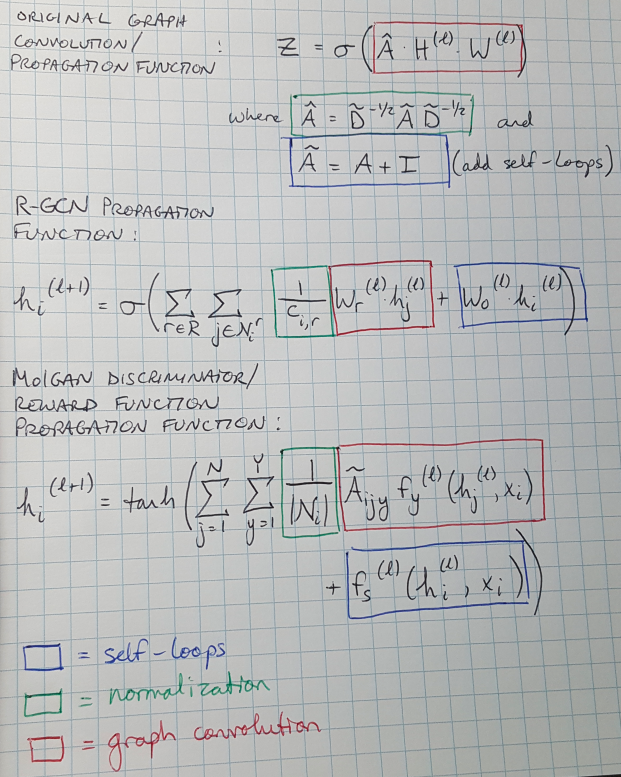 ORIGINAL GRAPH
CONVOLUTION/ : Z = σ(Â · H⁽ˡ⁾ · W⁽ˡ⁾)
PROPAGATION FUNCTION
where Â = D̃^-1/2 Ã D̃^-1/2 and
Ã = A + I (add self-loops)
R-GCN PROPAGATION
FUNCTION :
hᵢ^(l+1) = σ(∑_{r∈R} ∑_{j∈Nᵢʳ} 1/c_{i,r} Wᵣ^(l) · hⱼ^(l) + W₀^(l) · hᵢ^(l))
MolGAN DISCRIMINATOR/
REWARD FUNCTION
PROPAGATION FUNCTION :
hᵢ^(l+1) = tanh(∑_{j=1}^{N} ∑_{y=1}^{Y} 1/|Nᵢ| Ã_{ijy} f_y^(l)(hⱼ^(l), xᵢ)
+ f_s^(l)(hᵢ^(l), xᵢ))
= self-loops
= normalization
= graph convolution